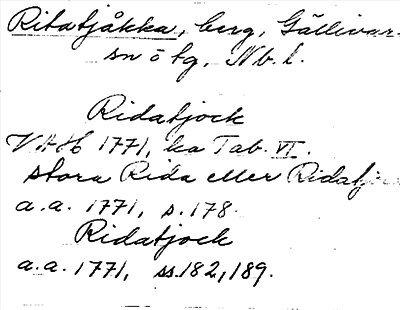 Ritatjåkka, berg, Gällivare
sn o tg, Nb. l.
Ridatjock
VAH 1771, ka Tab. VI.
stora Rida eller Ridatj
a.a. 1771, s. 178.
Ridatjock
a.a. 1771, ss. 182, 189.